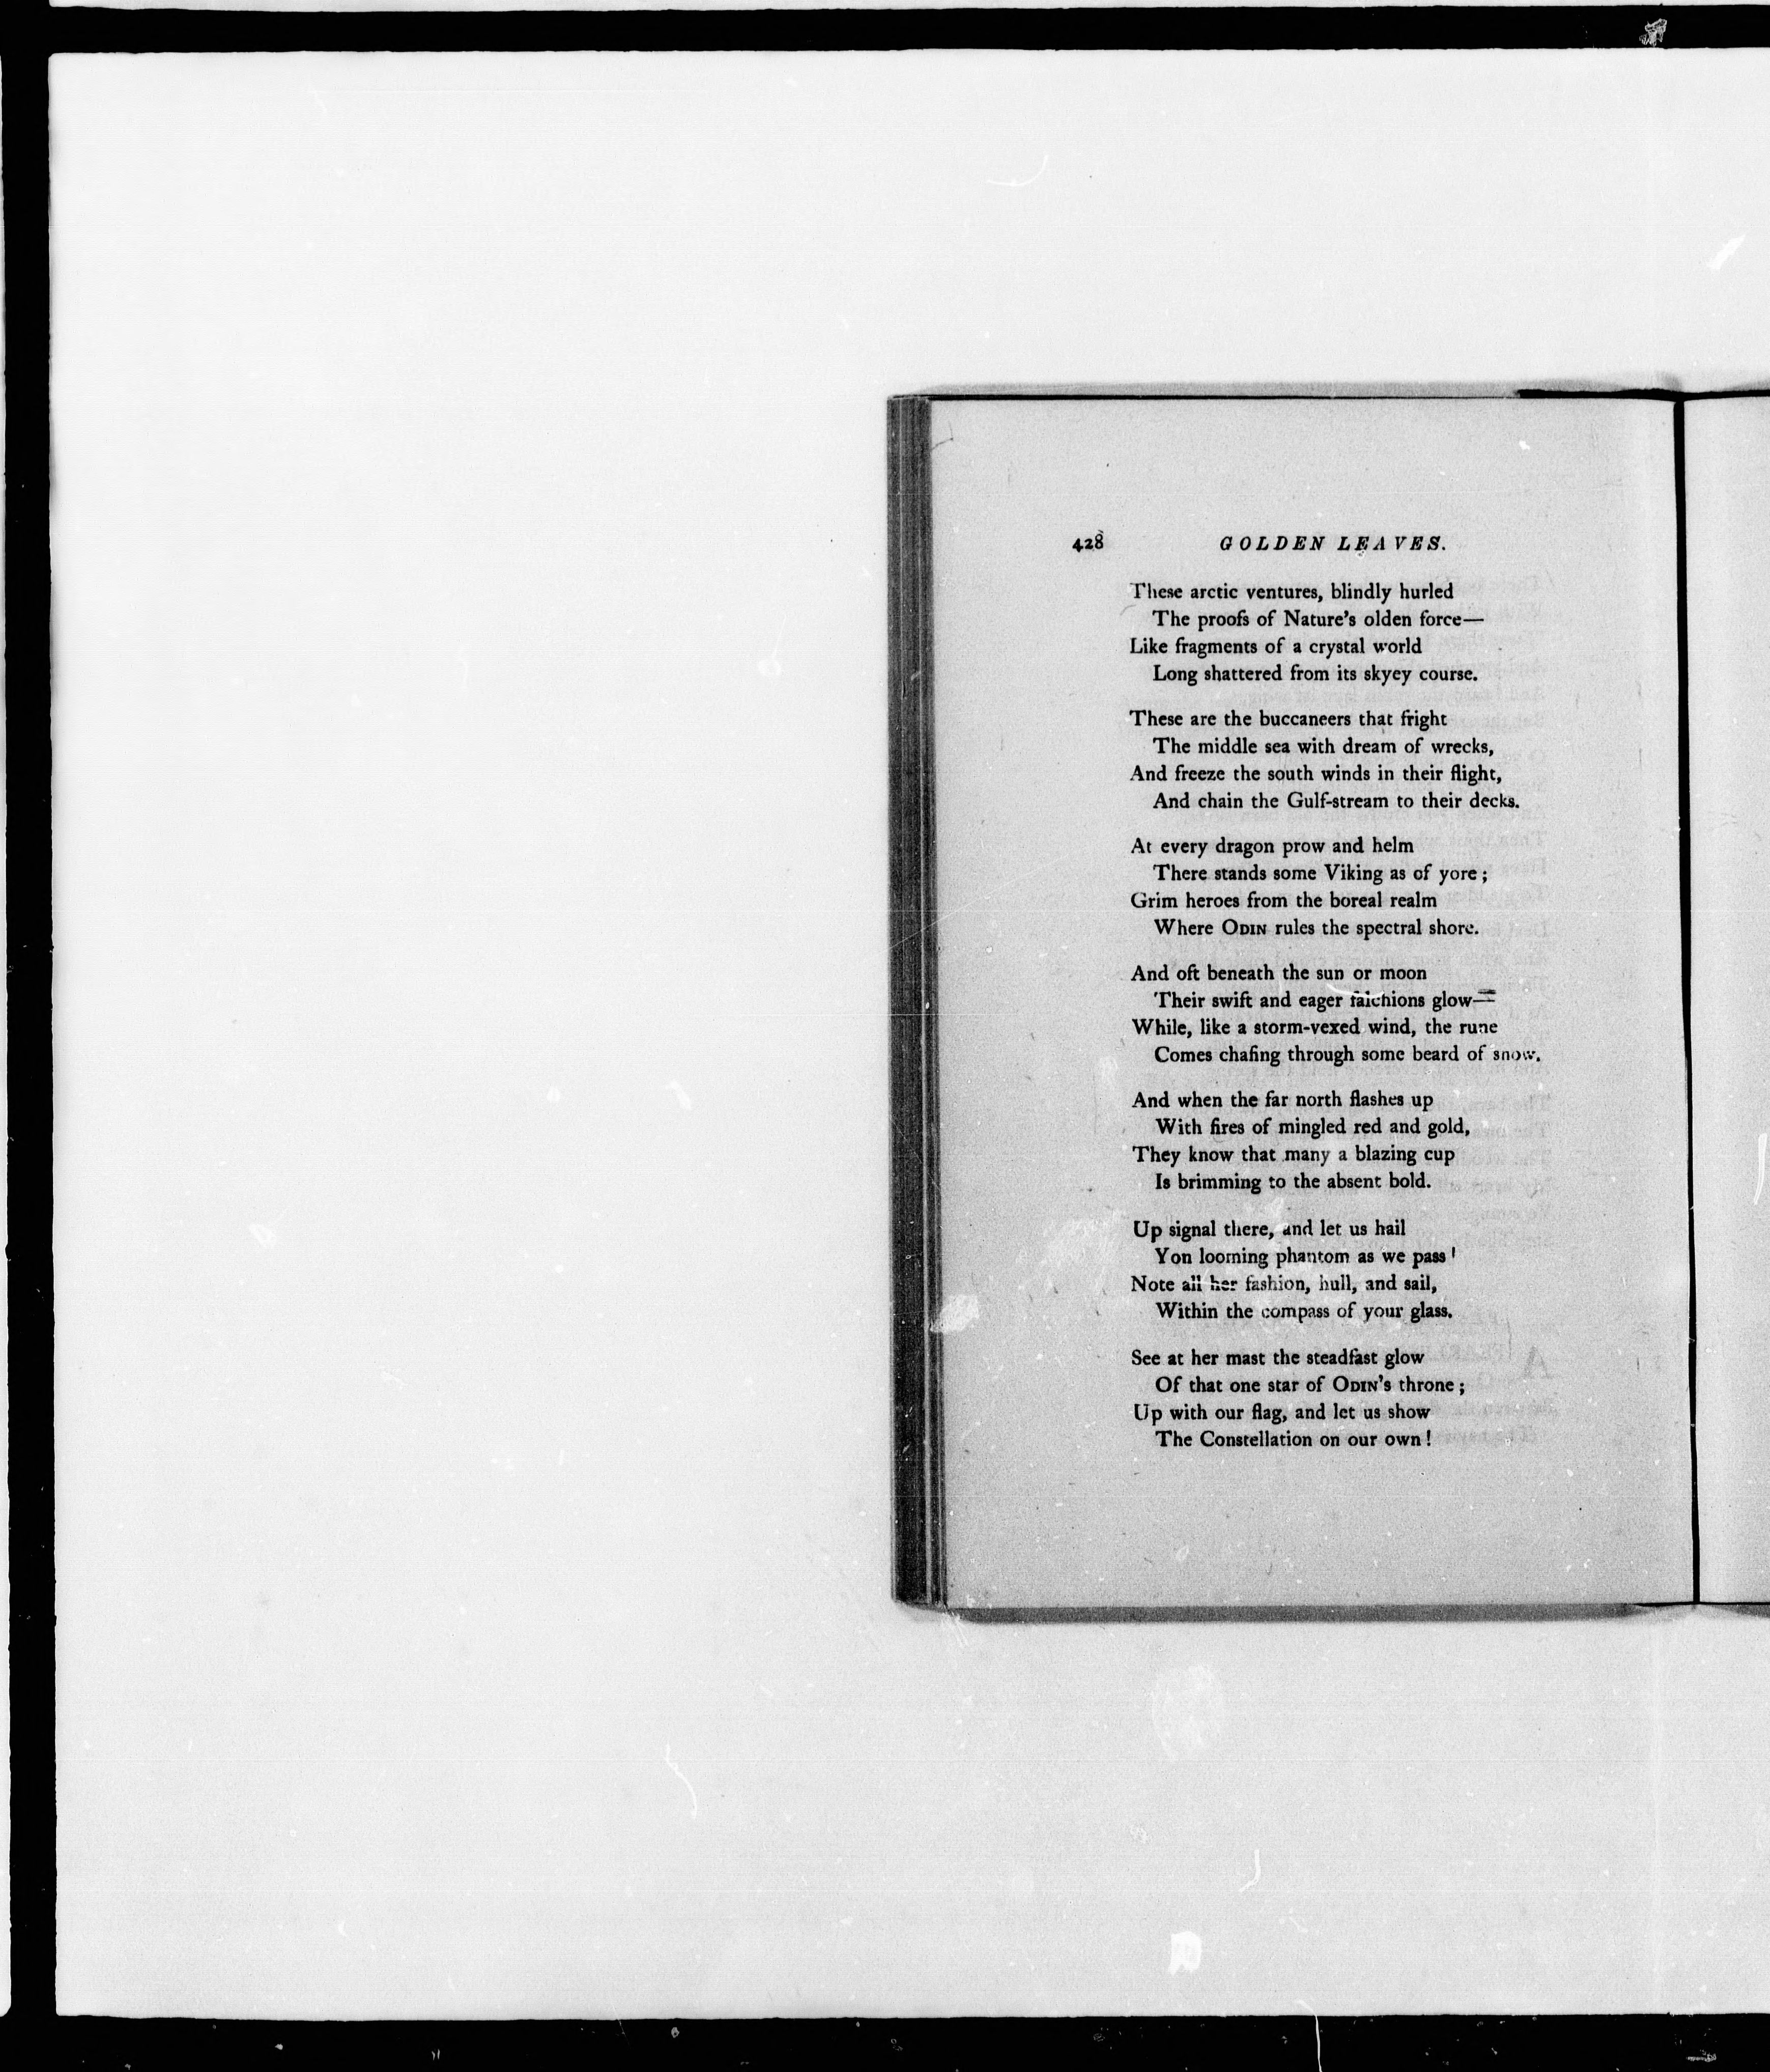 428 GOLDEN LEAVES.
These arctic ventures, blindly hurled
The proofs of Nature's olden force—
Like fragments of a crystal world
Long shattered from its skyey course.
These are the buccaneers that fright
The middle sea with dream of wrecks,
And freeze the south winds in their flight,
And chain the Gulf-stream to their decks.
At every dragon prow and helm
There stands some Viking as of yore;
Grim heroes from the boreal realm
Where ODIN rules the spectral shore.
And oft beneath the sun or moon
Their swift and eager falchions glow—
While, like a storm-vexed wind, the rune
Comes chafing through some beard of snow.
And when the far north flashes up
With fires of mingled red and gold,
They know that many a blazing cup
Is brimming to the absent bold.
Up signal there, and let us hail
Yon looming phantom as we pass!
Note all her fashion, hull, and sail,
Within the compass of your glass.
See at her mast the steadfast glow
Of that one star of ODIN's throne;
Up with our flag, and let us show
The Constellation on our own!